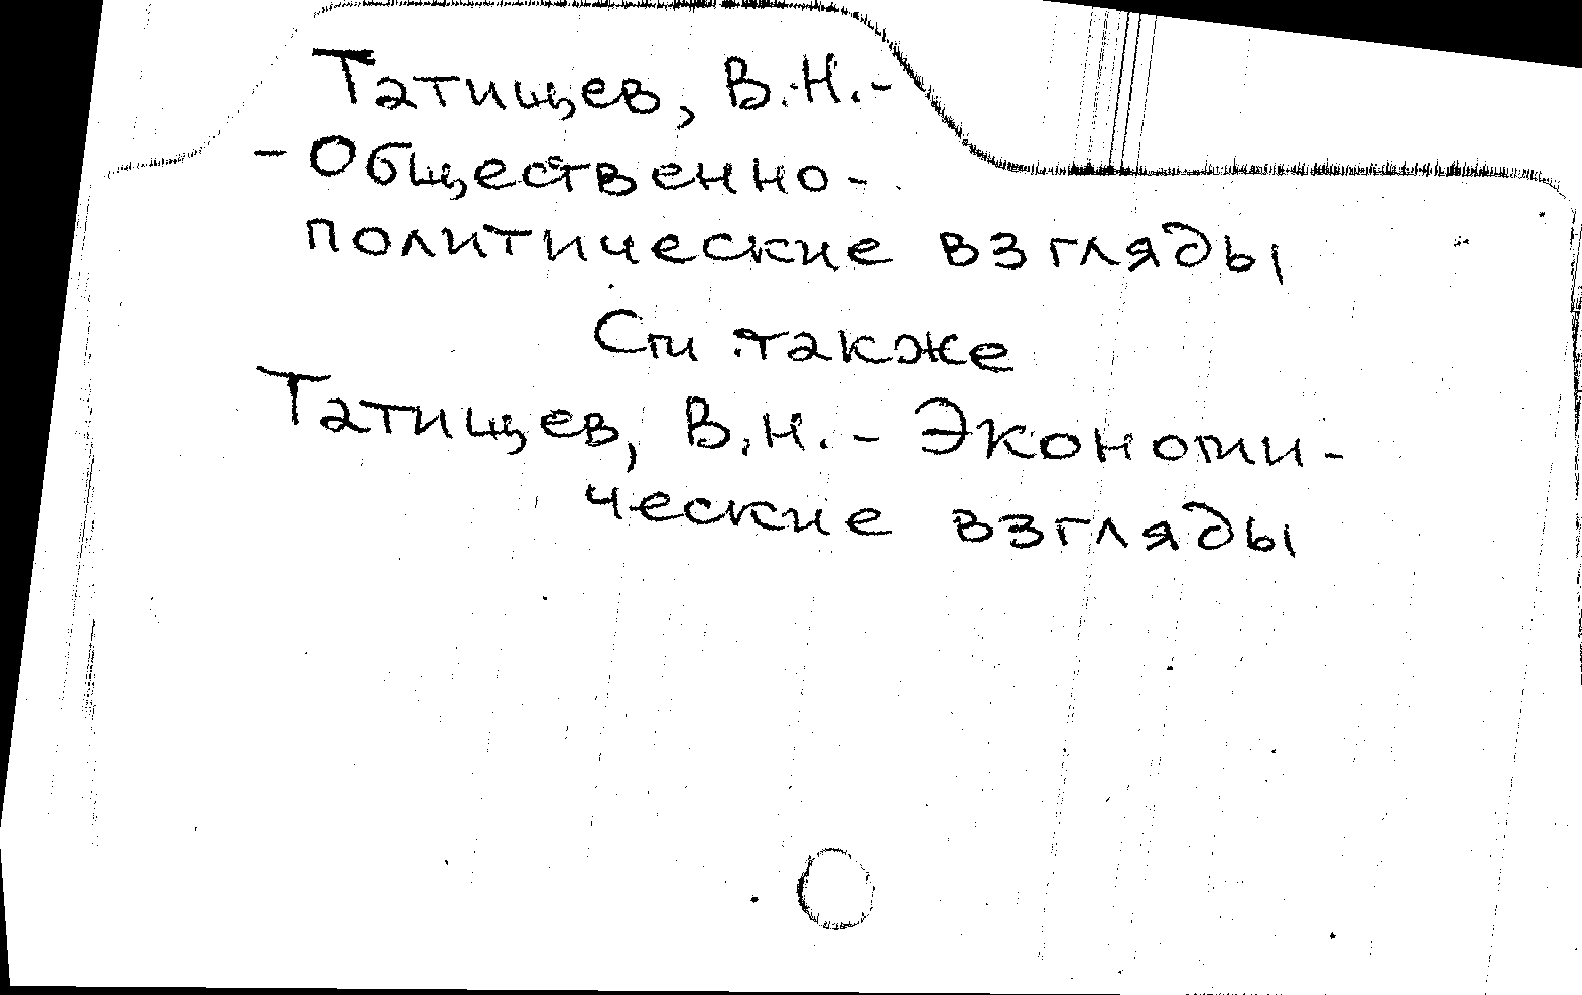 Татищев, В.Н.-
- Общественно-
политические взгляды
См. также
Татищев, В.Н. - Экономи-
ческие взгляды